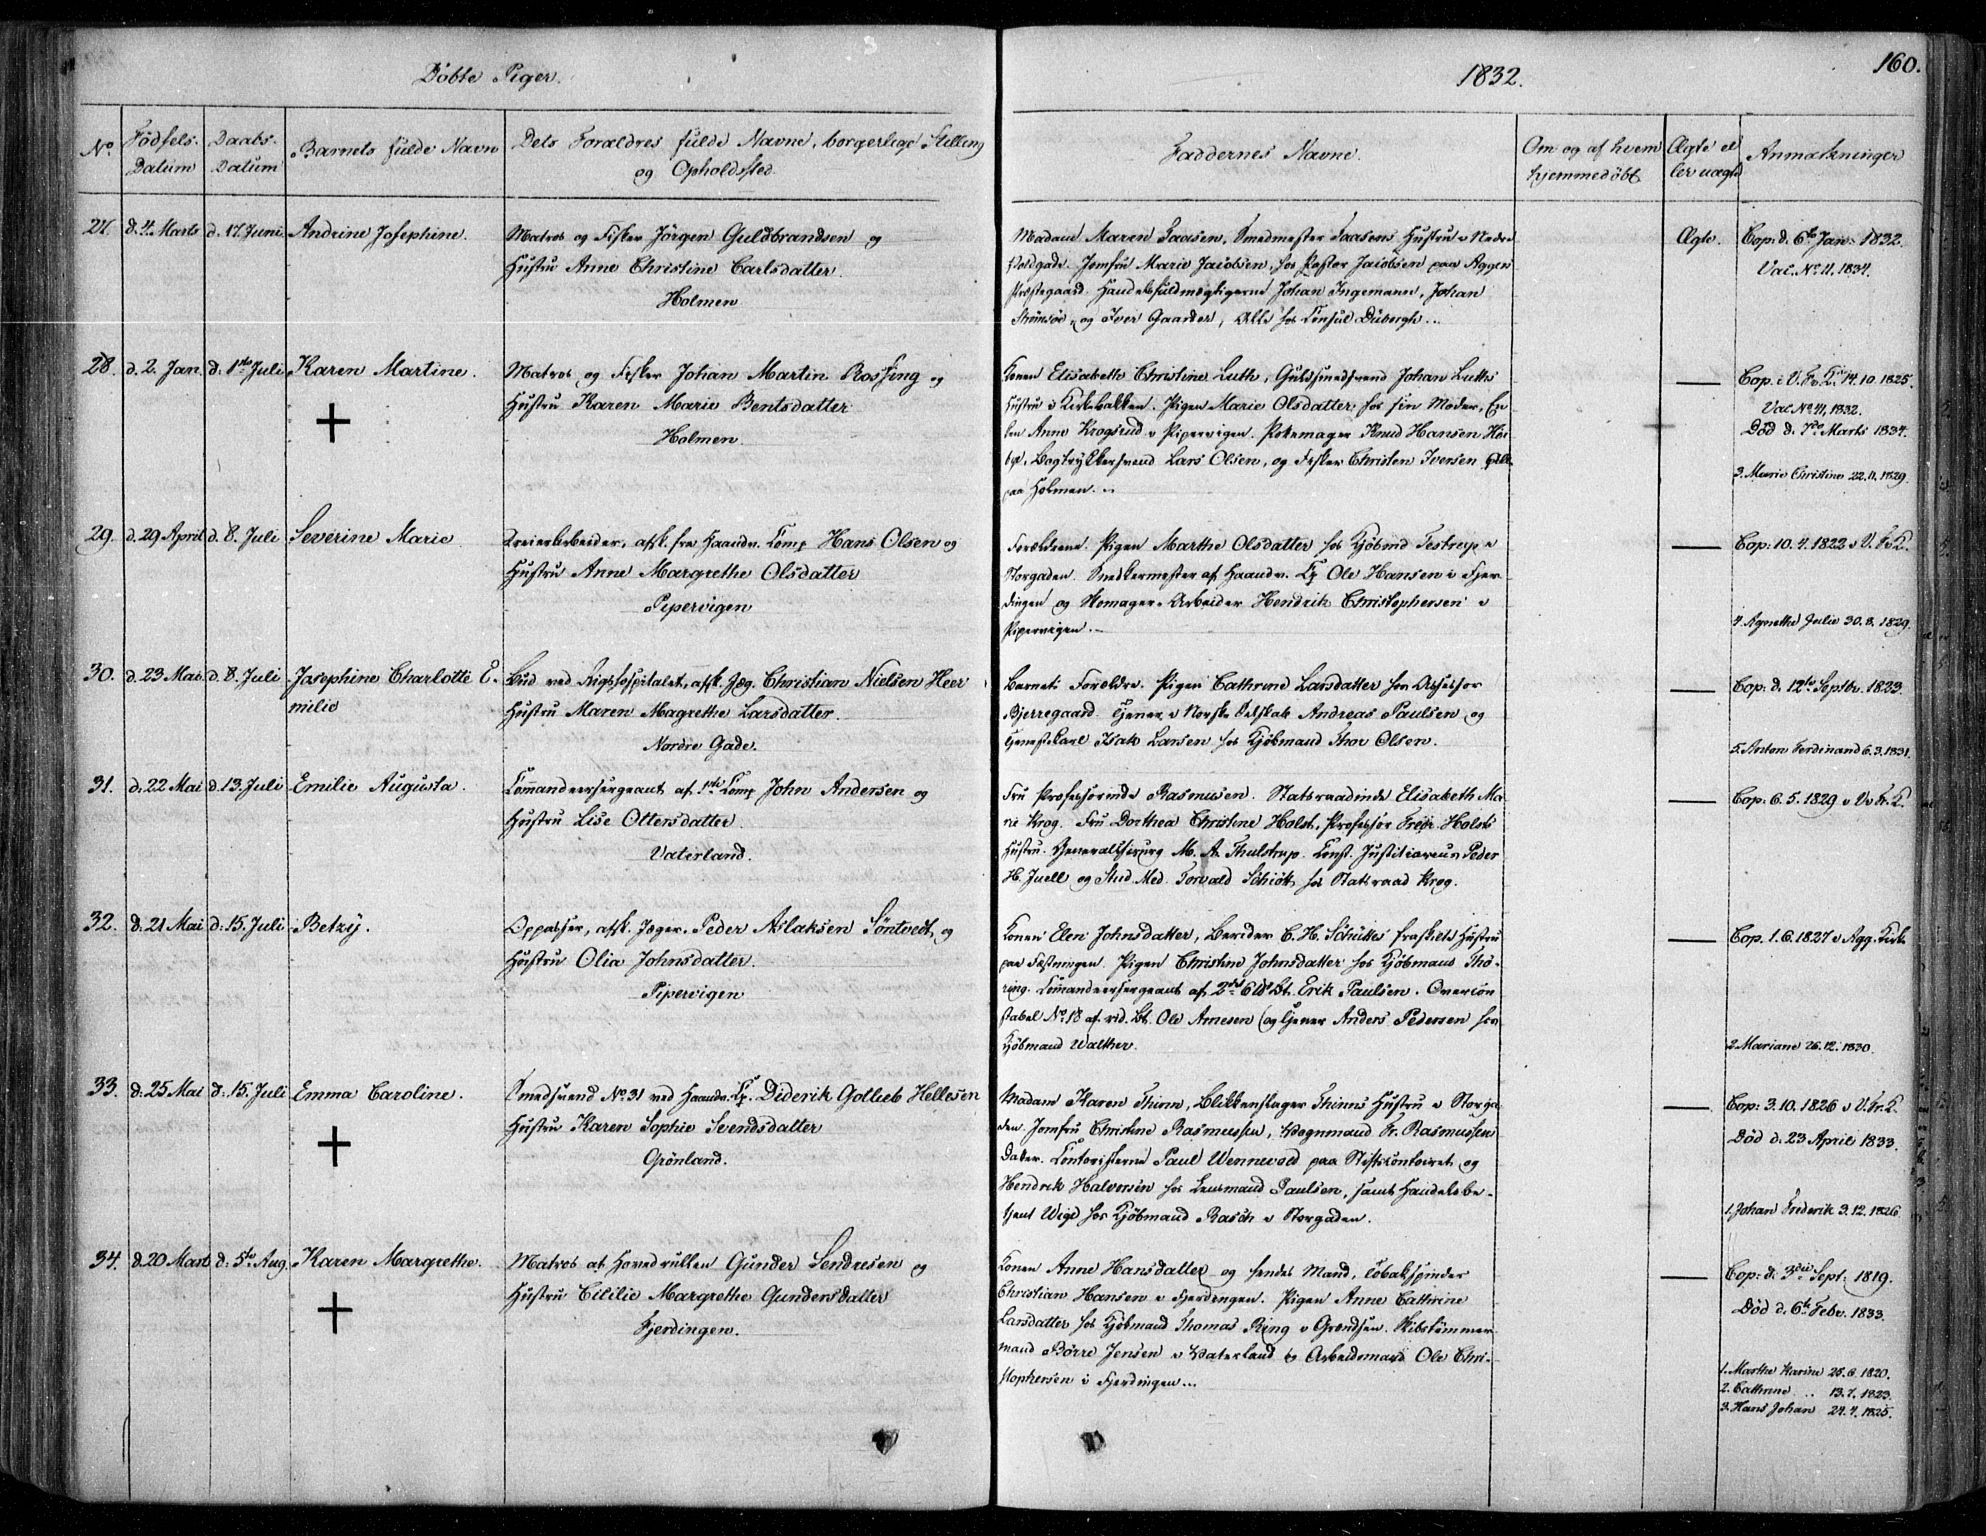 Døbte Piger.
1832.
160.
No
Fødsels-
Datum
Daabs-
Datum
Barnets fulde Navn
Dets Forældres fulde Navne, borgerlige Stilling
og Opholdsted.
Faddernes Navne.
Om og af hvem
hjemmedøbt
Ægte el
ler uægte
Anmærkninger
27. d. 4. Marts d. 17. Juni. Andrine Josephine.
Matros og Fisker Jörgen Guldbrandsen og
Hustru Anne Christine Carlsdatter.
Holmen
Madam Maren Faasen, Smedmester Faasens Hustru i Nedre
Voldgade. Jomfru Marie Jacobsen, hos Pastor Jacobsen paa Agger
Præstegaard. Handelsfuldmægtigerne Johan Ingemann, Johan
Strömsöe, og Iver Gaarder, Alle hos Consul Duborgh.
Ægte.
Cop: d. 6te Jan: 1832.
Vac. No 11. 1834.
28. d. 2. Jan. d. 1ste Juli Karen Martine.
Matros og Fisker Johan Martin Rossing og
Hustru Karen Marie Bentsdatter
Holmen.
Konen Elisabeth Christine Luth, Guldsmedsvend Johan Luths
Hustru i Kirkebakken. Pigen Marie Olsdatter hos sin Moder, En-
ken Anne Krogsrud i Pipervigen. Knud Hansen
Bogtrykkersvend Lars Olsen, og Fisker Christen Iversen Alle
paa Holmen.
Cop. i V. Fr. K. 14. 10. 1825.
Vac No 11, 1832.
Död d. 7de Marts 1834.
3. Marie Christine 22. 11. 1829.
29. d. 29 April d. 8. Juli Severine Marie
Dreierarbeider, afsk. fra Haandv. Comp Hans Olsen og
Hustru Anne Margrethe Olsdatter
Pipervigen
Forældrene. Pigen Marthe Olsdatter hos Kjöbmd Testrup i
Storgaden. Snedkermester af Haandv. Cp Ole Hansen i Fjer-
dingen og Skomager-Arbeider Hendrik Christophersen i
Pipervigen.
Cop: 10. 4. 1822 i V. Fr. K.
4. Agnethe Julie 30. 8. 1829.
30. d. 23 Mai d. 8. Juli Josephine Charlotte E-
milie
Bud ved Rigshospitalet, afsk. Jæg. Christian Nielsen Heer
Hustru Maren Magrethe Larsdatter.
Nordre Gade.
Barnets Forældre. Pigen Cathrine Larsdatter hos Assessor
Bjerregaard. Tjener i Norske Selskab Andreas Paulsen og
Tjenestekarl Isak Larsen hos Kjöbmand Thor Olsen.
Cop: d. 12te Septbr. 1823.
5. Anton Ferdinand 6. 3. 1831.
31. d. 22 Mai d. 13. Juli Emilie Augusta.
Commandeersergeant af 1ste Comp John Andersen og
Hustru Lise Ottersdatter.
Vaterland.
Fru Professorinde Rasmusen. Statsraadinde Elisabeth Ma-
rie Krog. Fru Dorthea Christine Holst, Professor Fredr. Holsts
Hustru. Generalchirurg M. A. Thulstrup. Const. Justitiarius Peder
H. Juell og Stud. Med. Torvald Schiöth hos Statsraad Krog.
Cop: 6. 5. 1829 i Vor Fr. K.
32. d. 21 Mai d. 15. Juli Betzy.
Oppasser, afsk. Jæger. Peder Aslaksen Söntvedt og
Hustru Olia Johnsdatter.
Pipervigen
Konen Elen Johnsdatter, Berider C. H. Schütts fraskilte Hustru
paa Fæstningen. Pigen Christine Johnsdatter hos Kjöbmand Thö-
ring. Commandeersergeant af 2det Bt. Erik Paulsen. Overcon-
stabel No 18 af rid. Bt. Ole Arnesen og Tjener Anders Pedersen hos
Kjöbmand Walther.
Cop. 1. 6. 1827 i Agg. Kirke
2. Mariane 26. 12. 1830.
33. d. 25 Mai d. 15. Juli Emma Caroline.
Smedsvend No. 31 ved Haandv. Cp. Diderik Gotlieb Hellesen
Hustru Karen Sophie Svendsdatter
Grönland.
Madam Karen Thinn, Blikkenslager Thinns Hustru i Storga-
den. Jomfru Christine Rasmussen, Vognmand Fr. Rasmussens
Datter. Contoristerne Paul Wennevold paa Stiftscontoiret og
Hendrik Halvorsen hos Lensmand Paulsen, samt Handelsbe-
tjent Wige hos Kjöbmand Rasch i Storgaden.
Cop: 3. 10. 1826 i V. Fr. K.
Död d. 23 April 1833.
1. Johan Frederik 3. 12. 1826.
34. d. 20 Marts d. 5te Aug. Karen Margrethe.
Matros af Hovedrullen Gunder Sendresen og
Hustru Cicilie Margrethe Gundersdatter
Fjerdingen.
Konen Anne Hansdatter og hendes Mand, Tobakspinder
Christian Hansen i Fjerdingen. Pigen Anne Cathrine
Larsdatter hos Kjöbmand Thomas Ring i Grændsen. Skibstömmer-
mand Börre Jensen i Vaterland og Arbeidsmand Ole Chri-
stophersen i Fjerdingen
Cop: d. 3die Sept. 1819.
Död d. 6te Febr. 1833.
1. Marthe Karine 25. 6. 1820.
2. Cathrine 13. 7. 1823.
3. Hans Johan 24. 4. 1825.